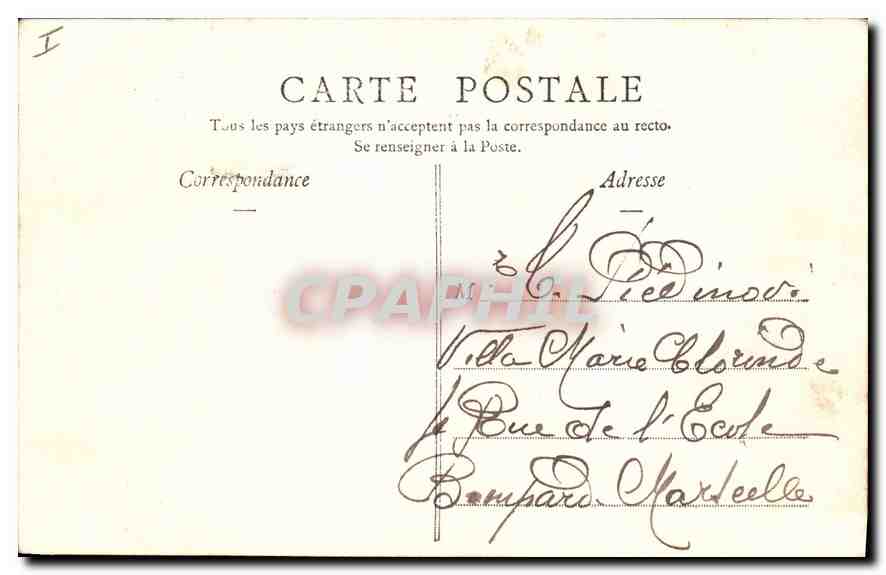 I
CARTE POSTALE
Tous les pays étrangers n'acceptent pas la correspondance au recto.
Se renseigner à la Poste.
Correspondance
Adresse
CPAPHIL
M r C. Piedinovi
Villa Marie Clorinde
Rue de l'Ecole
Bompard Marseille